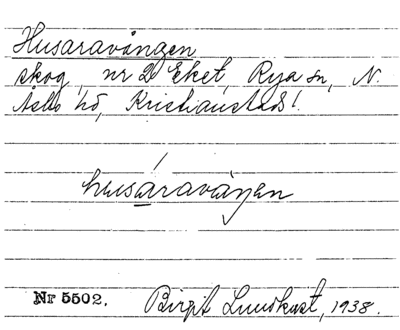 Husaravången
skog, nr 2 Eket, Rya sn, N.
Åsbo hd, Kristianstads l.
husaravåŋen
Nr 5502. Birgit Lundkvist, 1938.